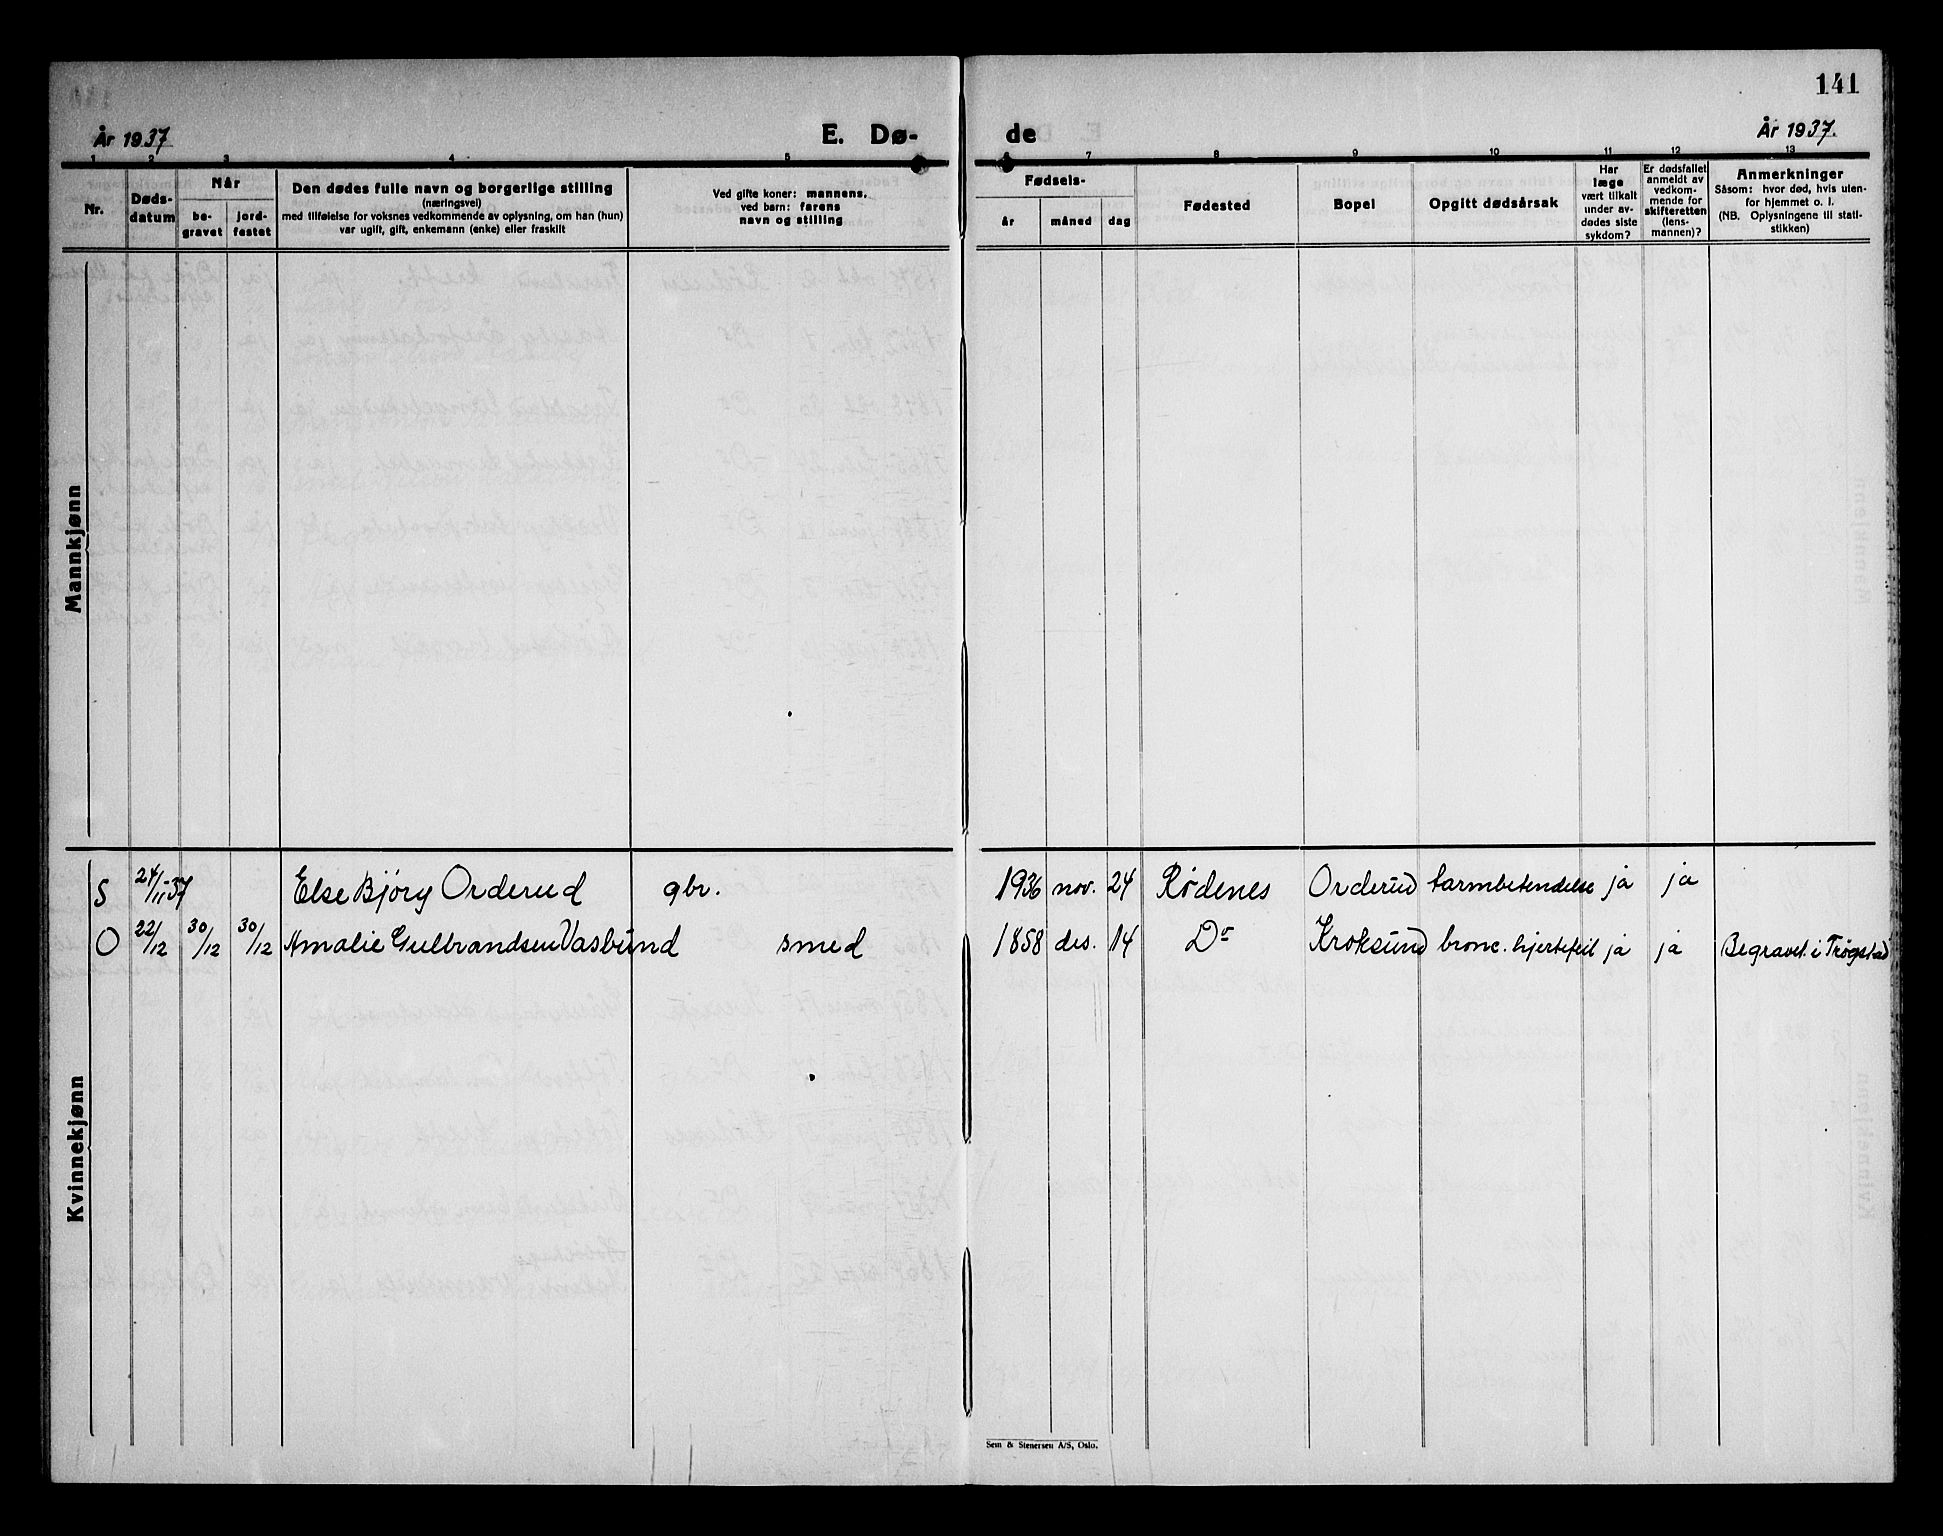 141
År 1937
E. Dø-
de
År 1937.
1 2 3 4 5
6 7 8 9 10 11 12 13
Nr.
Døds-
datum
Når
be-
gravet
jord-
festet
Den dødes fulle navn og borgerlige stilling
(næringsvei)
med tilføielse for voksnes vedkommende av oplysning, om han (hun)
var ugift, gift, enkemann (enke) eller fraskilt
Ved gifte koner: mannens.
ved barn: farens
navn og stilling
Fødsels-
år
måned
dag
Fødested
Bopel
Opgitt dødsårsak
Har
læge
vært tilkalt
under av-
dødes siste
sykdom?
Er dødsfallet
anmeldt av
vedkom-
mende for
skifteretten
(lens-
mannen)?
Anmerkninger
Såsom: hvor død, hvis uten-
for hjemmet o. l.
(NB. Oplysningene til stati-
stikken)
Mannkjønn
Kvinnekjønn
S 24/11 37 Else Bjørg Orderud gbr. 1936 nov. 24 Rødenes Orderud tarmbetendelse ja ja
O 22/12 30/12 30/12 Amalie Gulbrandsen Vasbund smed 1858 des. 14 Do Kroksund bronc. hjertefeil ja ja Begravet i Trøgstad
Sem & Stenersen A/S, Oslo.